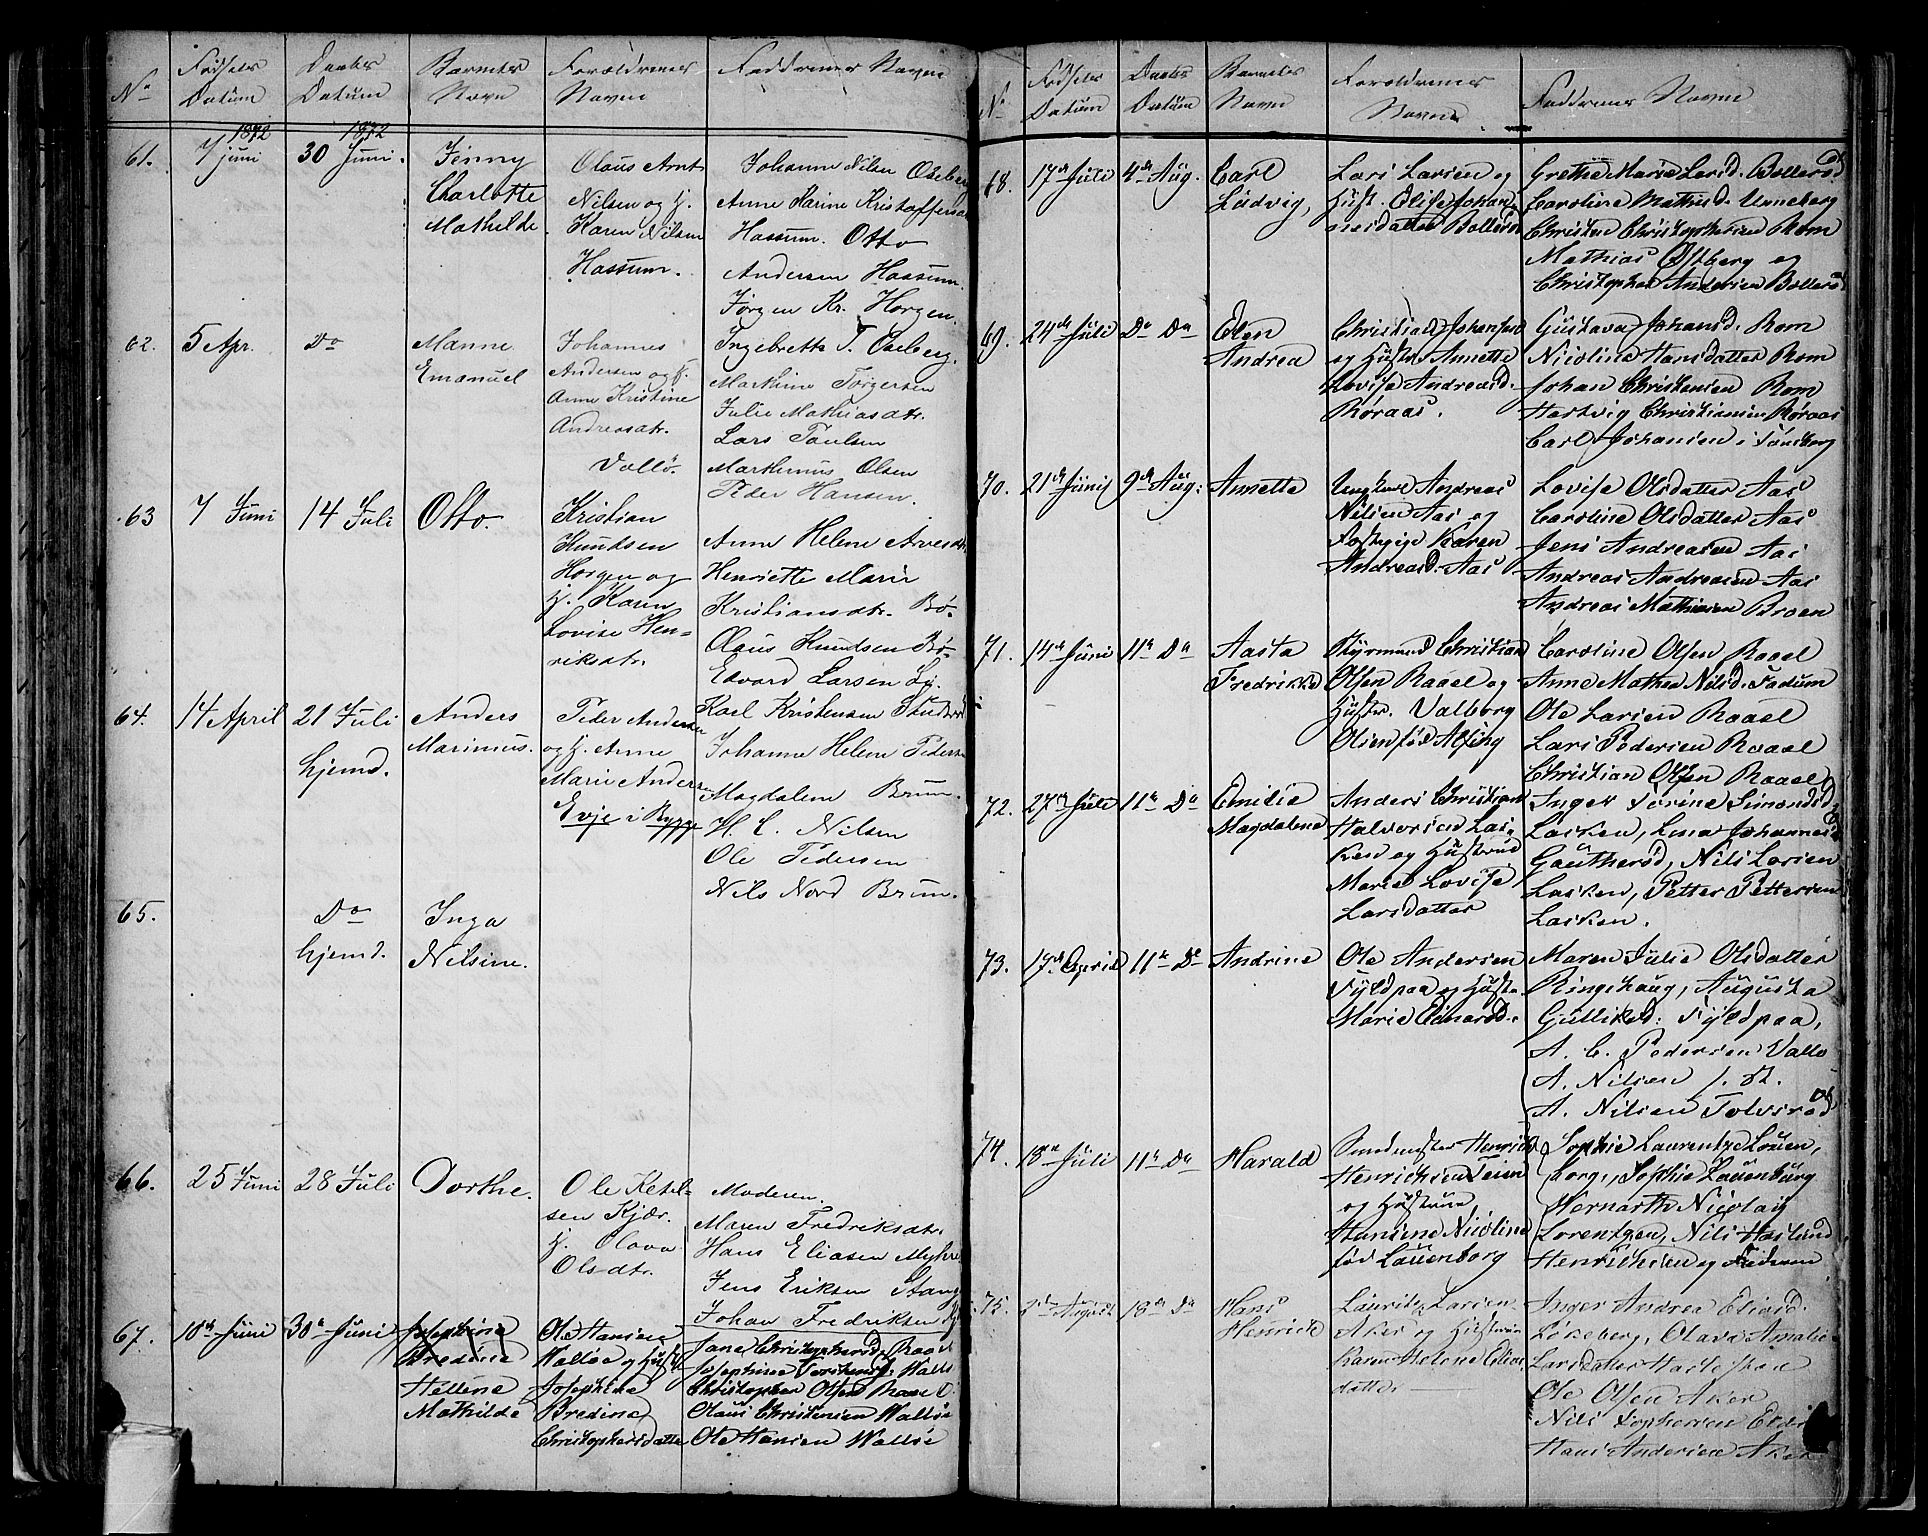 No
Fødsels
Datum
Daabs
Datum
Barnets
Navn
Forældrenes
Navne
Faddrenes Navne
61.
1872
7 juni
1872
30 Juni.
Jenny
Charlotte
Mathilde.
Olaus Arnt
Nilsen og H.
Karen Nilsen
Hassum.
Johanne Nilsen Oseberg
Anne Karine Kristoffersdtr
Hassum. Otto
Andersen Hassum.
Jørgen Kr. Horgen.
62.
5 Apr.
Do
Manne
Emanuel
Johannes
Andersen og H.
Anne Kristine
Andreasdtr.
Vallö.
Ingebrette T. Oseberg.
Marthine Torgersen
Julie Mathiasdtr.
Lars Paulsen
Marthinus Olsen
Peder Hansen.
63
7 Juni
14 Juli
Otto.
Kristian
Knudsen
Horgen og
H. Karen
Lovise Hen-
riksdtr.
Anne Helene Arvesdtr.
Henriette Marie
Kristiansdtr. Bö-
Olaus Knudsen Bö-
Edvard Larsen
64.
14 April
21 Juli
hjemd.
Anders
Marinius.
Peder Andersen
og H. Anne
Marie Anders
Evje i Rygge
Karl Kristensen
Johanne Helene Peders
Magdalene Bruun.
H. C. Nilsen
Ole Pedersen
Nils Nord Bruun.
65.
Do
hjemd.
Inga
Nilsine.
66.
25 Juni
28 Juli
Dorthe.
Ole Ketel-
sen Kjær.
H. Olava
Olsdtr.
Moderen.
Maren Fredriksdtr.
Hans Eliasen Myhre
Jens Eriksen Stang
Johan Fredriksen
67.
10de Juni
30te Juni
Josephine
Bredine
Hellene
Mathilde
Ole Hansen
Valløe og Hustr
Josephine
Bredine
Christophersdatter
Jane Christophersd. Raael
Josephine Torstensd. Vallö
Christopher Olsen Raael
Olaus Christensen Valløe
Ole Hansen Valløe
No
Fødsels
Datum
Daabs
Datum
Barnets
Navn
Forældrenes
Navne
Faddrenes Navne
68.
17de Juli
4de Aug.
Carl
Ludvig,
Lars Larsen og
Hust. Elise Johan-
nesdatter Bollersö
Grethe Marie Larsd. Bollersød
Caroline Mathisd. Unneberg
Christen Christophersen Rom
Mathias Østberg og
Christopher Andersen Bollersød
69.
24de Juli
Do Do
Elen
Andrea
Christian Johansen
og Hustr. Annette
Lovise Andreasd.
Røraas.
Gustava Johansd. Rom
Nicoline Hansdatter Rom
Johan Christensen Rom
Hartvig Christiansen Røraas
Carl Johansen i Tønsberg
70.
21de Juni
9de Aug:
Annette
Ungkarl Andreas
Nilsen Aas og
Karen
Andreasd. Aas
Lovise Olsdatter Aas
Caroline Olsdatter Aas
Jens Andreasen Aas
Andreas Andreasen Aas
Andreas Mathisen Broen
71.
14de Juni
11te Do
Aasta
Fredrikke
Styrmand Christian
Olsen Raael og
Hustr. Valborg
Olsen fød
Caroline Olsen Raael
Anne Mathea Nilsd. Fadum
Ole Larsen Raael
Lars Pedersen Raael
Christian Olsen Raael
72.
27de Juli
11te Do
Emilie
Magdalene
Anders Christian
Halvorsen Las-
ken og Hustrue
Marie Lovise
Larsdatter
Inger Torine Simonsd.
Lasken, Lina Johannesd
Gautherød, Nils Larsen
Lasken, Petter Pettersen
Lasken.
73.
17de April
11te Do
Andrine
Ole Andersen
Fyldpaa og Hustr.
Marie Einarsd.
Maren Julie Olsdatter
Ringshaug, Augusta
Gulliksd. Fyldpaa,
A. C. Pedersen Vallö
A. Nilsen
A. Nilsen Tolvsrød
74.
18de Juli
11te Do
Harald
Henrich
Henrichsen Teien
og Hustrue
Hansine Nicoline
fød Lauenborg
Sophie Laurentze
Borg., Sophie Lauenburg
Bernarth Nicolay
Lorentzen, Nils Haslund
Henrichsen og Faderen
75.
August
18de Do
Hans
Henrich
Lauritz Larsen
Aker og Hustrue
Karen Helene Elias
datter
Inger Andrea Eliasd.
Løkeberg, Olava Amalie
Larsdatter
Ole Olsen Aker
Nils
Hans Andersen Aker